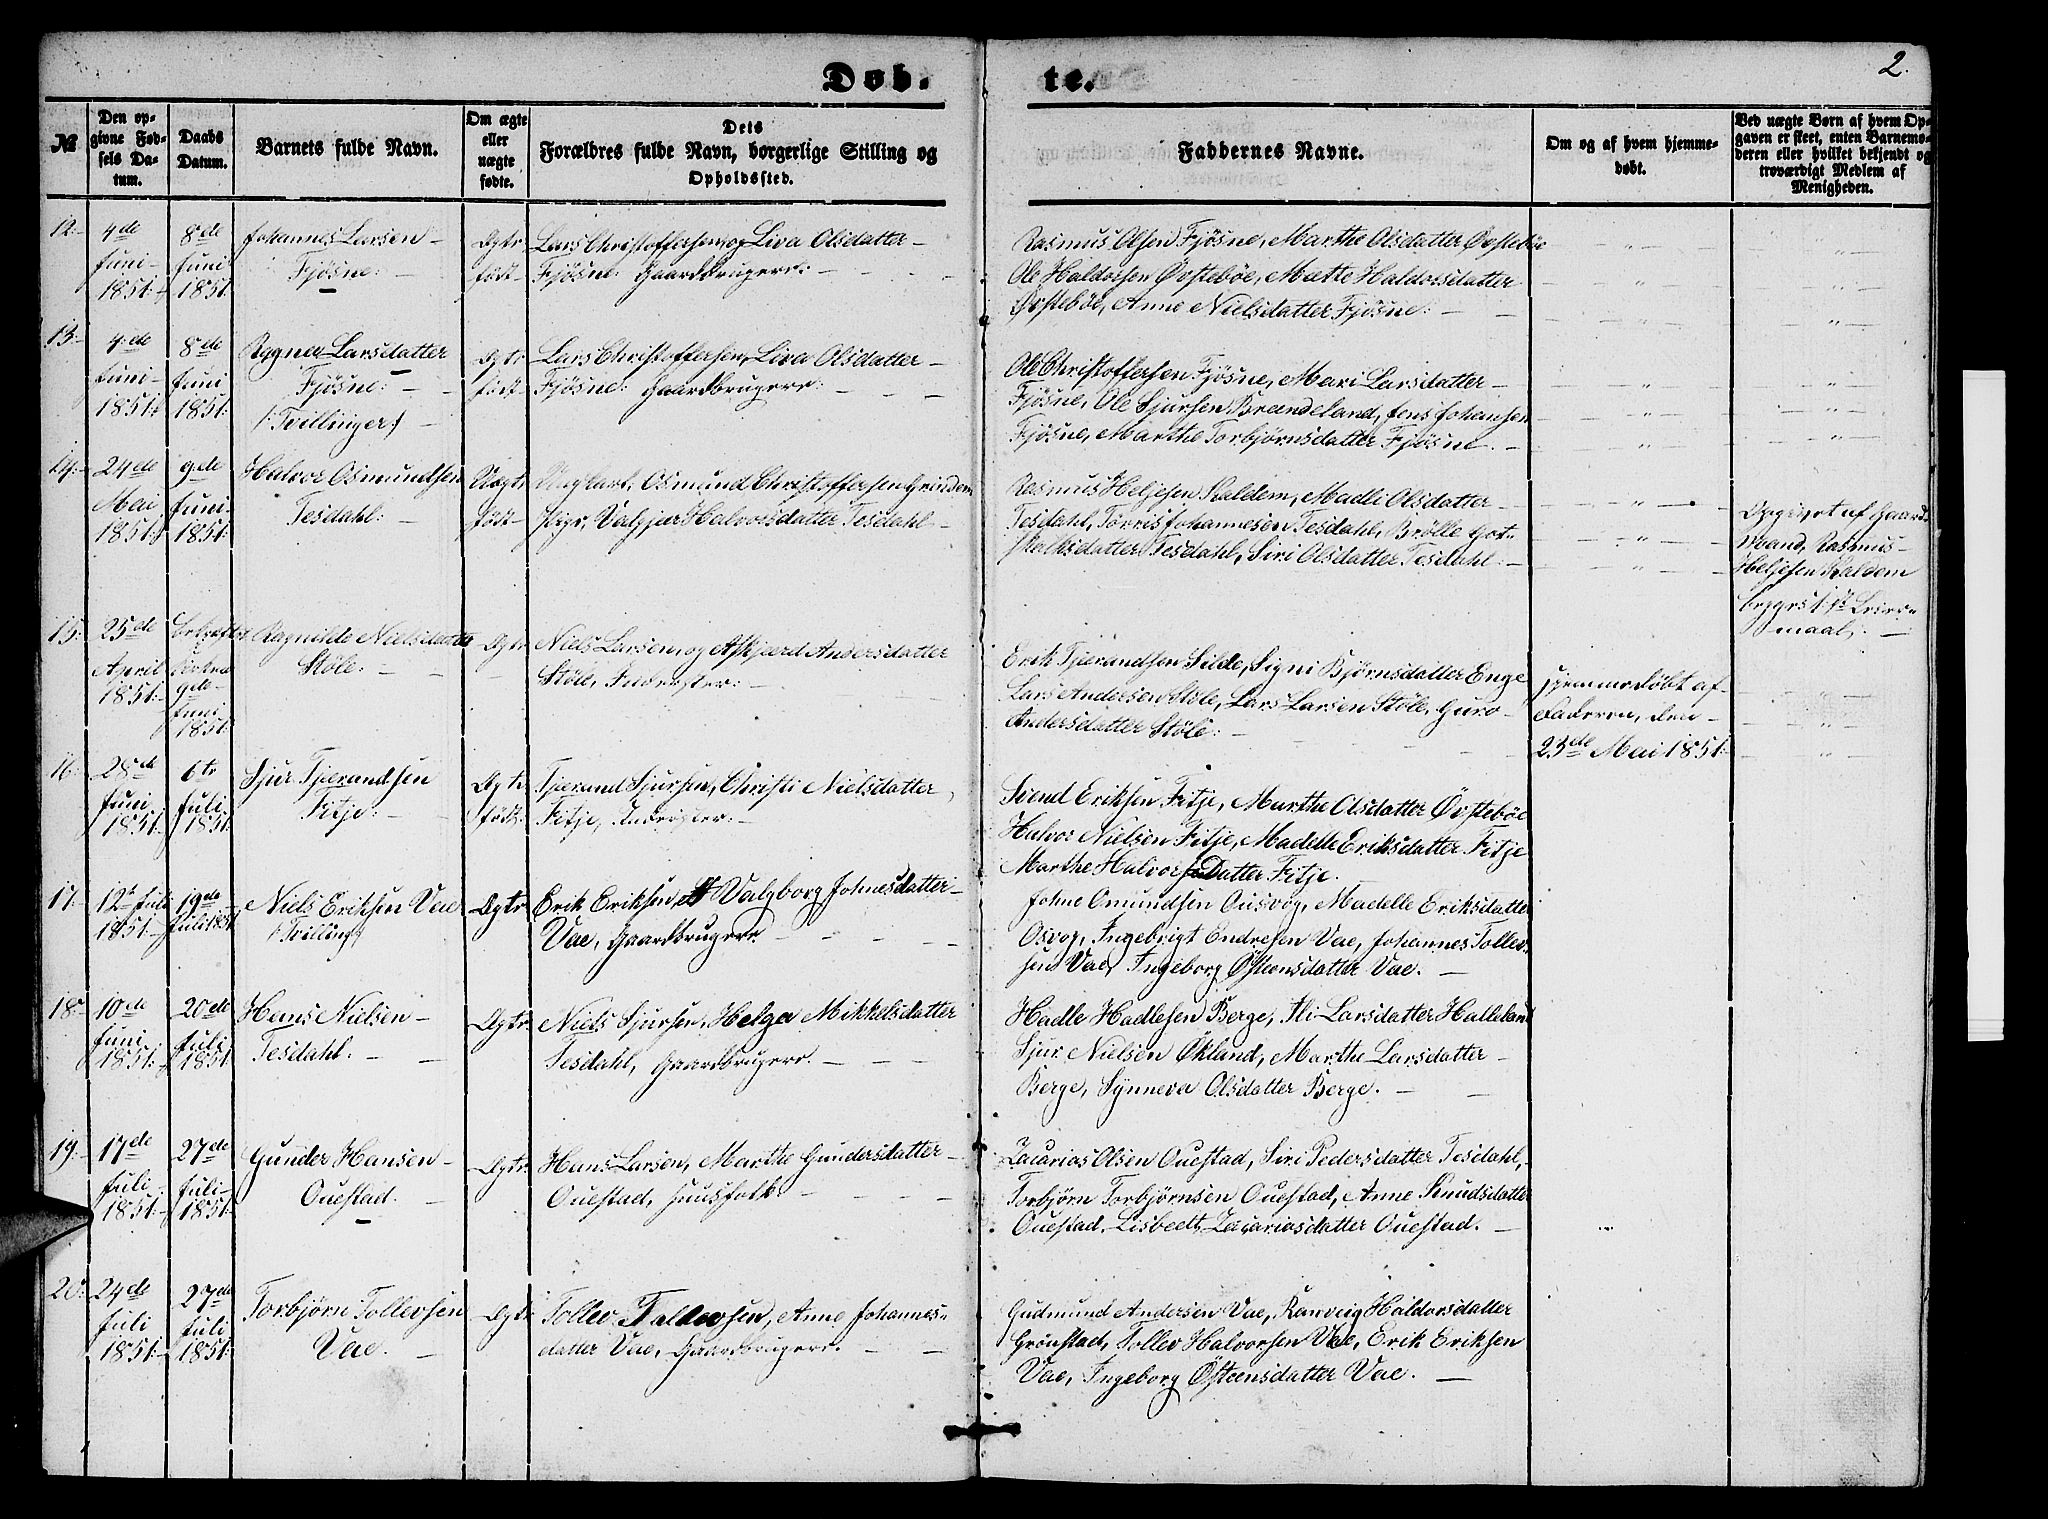 2.
Døb- te.
№
Den opgivne Fødsels Datum.
Daabs Datum.
Barnets fulde Navn.
Om ægte eller uægte fødte.
Dets Forældres fulde Navn, borgerlige Stilling og Opholdssted.
Faddernes Navne.
Om og af hvem hjemmedøbt.
Ved uægte Børn af hvem Opgaven er skeet, enten Barnemoderen eller hvilket bekjendt og troværdigt Medlem af Menigheden.
12. 4de 8de Johannes Larsen Ægte Lars Christoffersen og Liva Olsdatter Rasmus Olsen Fjøsne, Marthe Olsdatter Øvstebøe
Juni Juni Fjøsne: født Fjøsne: Gaardbrugere: Ole Haldorsen Øvstebøe, Mette Haldorsdatter
1851: 1851: Øvstebøe, Anne Nielsdatter Fjøsne:
13. 4de 8de Larsdatter Ægte Lars Christoffersen, Liva Olsdatter Ole Christoffersen Fjøsne, Mari Larsdatter
Juni Juni Fjøsne: født Fjøsne: Gaardbrugere: Fjøsne, Ole Sjursen Brandeland, Jens Johansen
1851: 1851: /:Tvillinger:/ Fjøsne, Marthe Torbjørnsdatter Fjøsne.
14. 24de 9de Halvor Osmundsen Uægte Ungkarl, Osmund Christoffersen Rasmus Heljesen Kaldem, Madli Olsdatter
Mai Juni Tesdahl: født Pige, Halvorsdatter Tesdahl Tesdahl, Tørris Johannesen Tesdahl, Brølle Got- Opgivet af Gaard-
1851: 1851: skalksdatter Tesdahl, Siri Olsdatter Tesdahl: mand, Rasmus
Heljesen Kaldem
maal:
15. 25de Ragnilde Nielsdatter Ægte Niels Larsen, og Andersdatter Erik Tjerandsen Silde, Signi Bjørnsdatter Enge Hjemmedøbt af
April Støle: Støle, Lars Andersen Støle, Lars Larsen Støle, Guro Faderen, den
1851: 9de Andersdatter Støle: 23de Mai 1851:
Juni
1851:
16. 28de 6te Sjur Tjerandsen Ægte Tjerand Sjursen, Christi Nielsdatter Svend Eriksen Fitje, Marthe Olsdatter Øvstebøe
Juni Juli Fitje: født: Fitje, Inderster: Halvor Nielsen Fitje, Madelle Eriksdatter Fitje
1851: 1851: Marthe Halvorsdatter Fitje.
17. 12te Juli 19de Niels Eriksen Vae Ægte Erik Eriksen Valgborg Johnesdatter Johne Omundsen Ousvog, Madelle Eriksdatter
1851: Juli 1851 /:Tvilling:/ Vae, Gaardbrugere Osvog, Ingebrigt Endresen Vae, Johannes Tollev-
sen Vae, Ingeborg Østensdatter Vae.
18. 10de 20de Hans Nielsen Ægte Niels Sjursen, Helga Mikkelsdatter Hadle Hadlesen Berge, Ali Larsdatter Halleland
Juni Juli Tesdahl. Tesdahl, Gaardbrugere. Sjur Nielsen Økland, Marthe Larsdatter
1851: 1851: Berge, Synneva Olsdatter Berge.
19. 17de 27de Gunder Hansen Ægte Hans Larsen, Marthe Gundersdatter Zacarias Olsen Ouestad, Siri Pedersdatter Tesdahl,
Juli Juli Ouestad. Ouestad, Huusfolk Torbjørn Torbjørnsen Ouestad, Anne Knudsdatter
1851: 1851: Ouestad, Lisbeeth Zacariasdatter Ouestad.
20. 24de 27de Torbjørn Tollevsen Ægte Tollev Tollevsen, Anne Johannes- Gudmund Andersen Vae, Ranveig Haldorsdatter
Juli Juli Vae. datter Vae, Gaardbrugere. Grønstad, Tollev Halvorsen Vae, Erik Eriksen
1851: 1851: Vae, Ingeborg Østensdatter Vae.